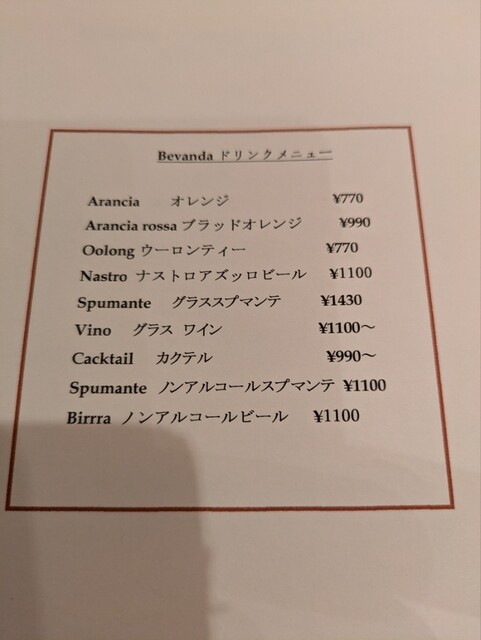 Bevanda ドリンクメニュー
Arancia オレンジ ¥770
Arancia rossa ブラッドオレンジ ¥990
Oolong ウーロンティー ¥770
Nastro ナストロアズッロビール ¥1100
Spumante グラススプマンテ ¥1430
Vino グラス ワイン ¥1100～
Cacktail カクテル ¥990～
Spumante ノンアルコールスプマンテ ¥1100
Birrra ノンアルコールビール ¥1100